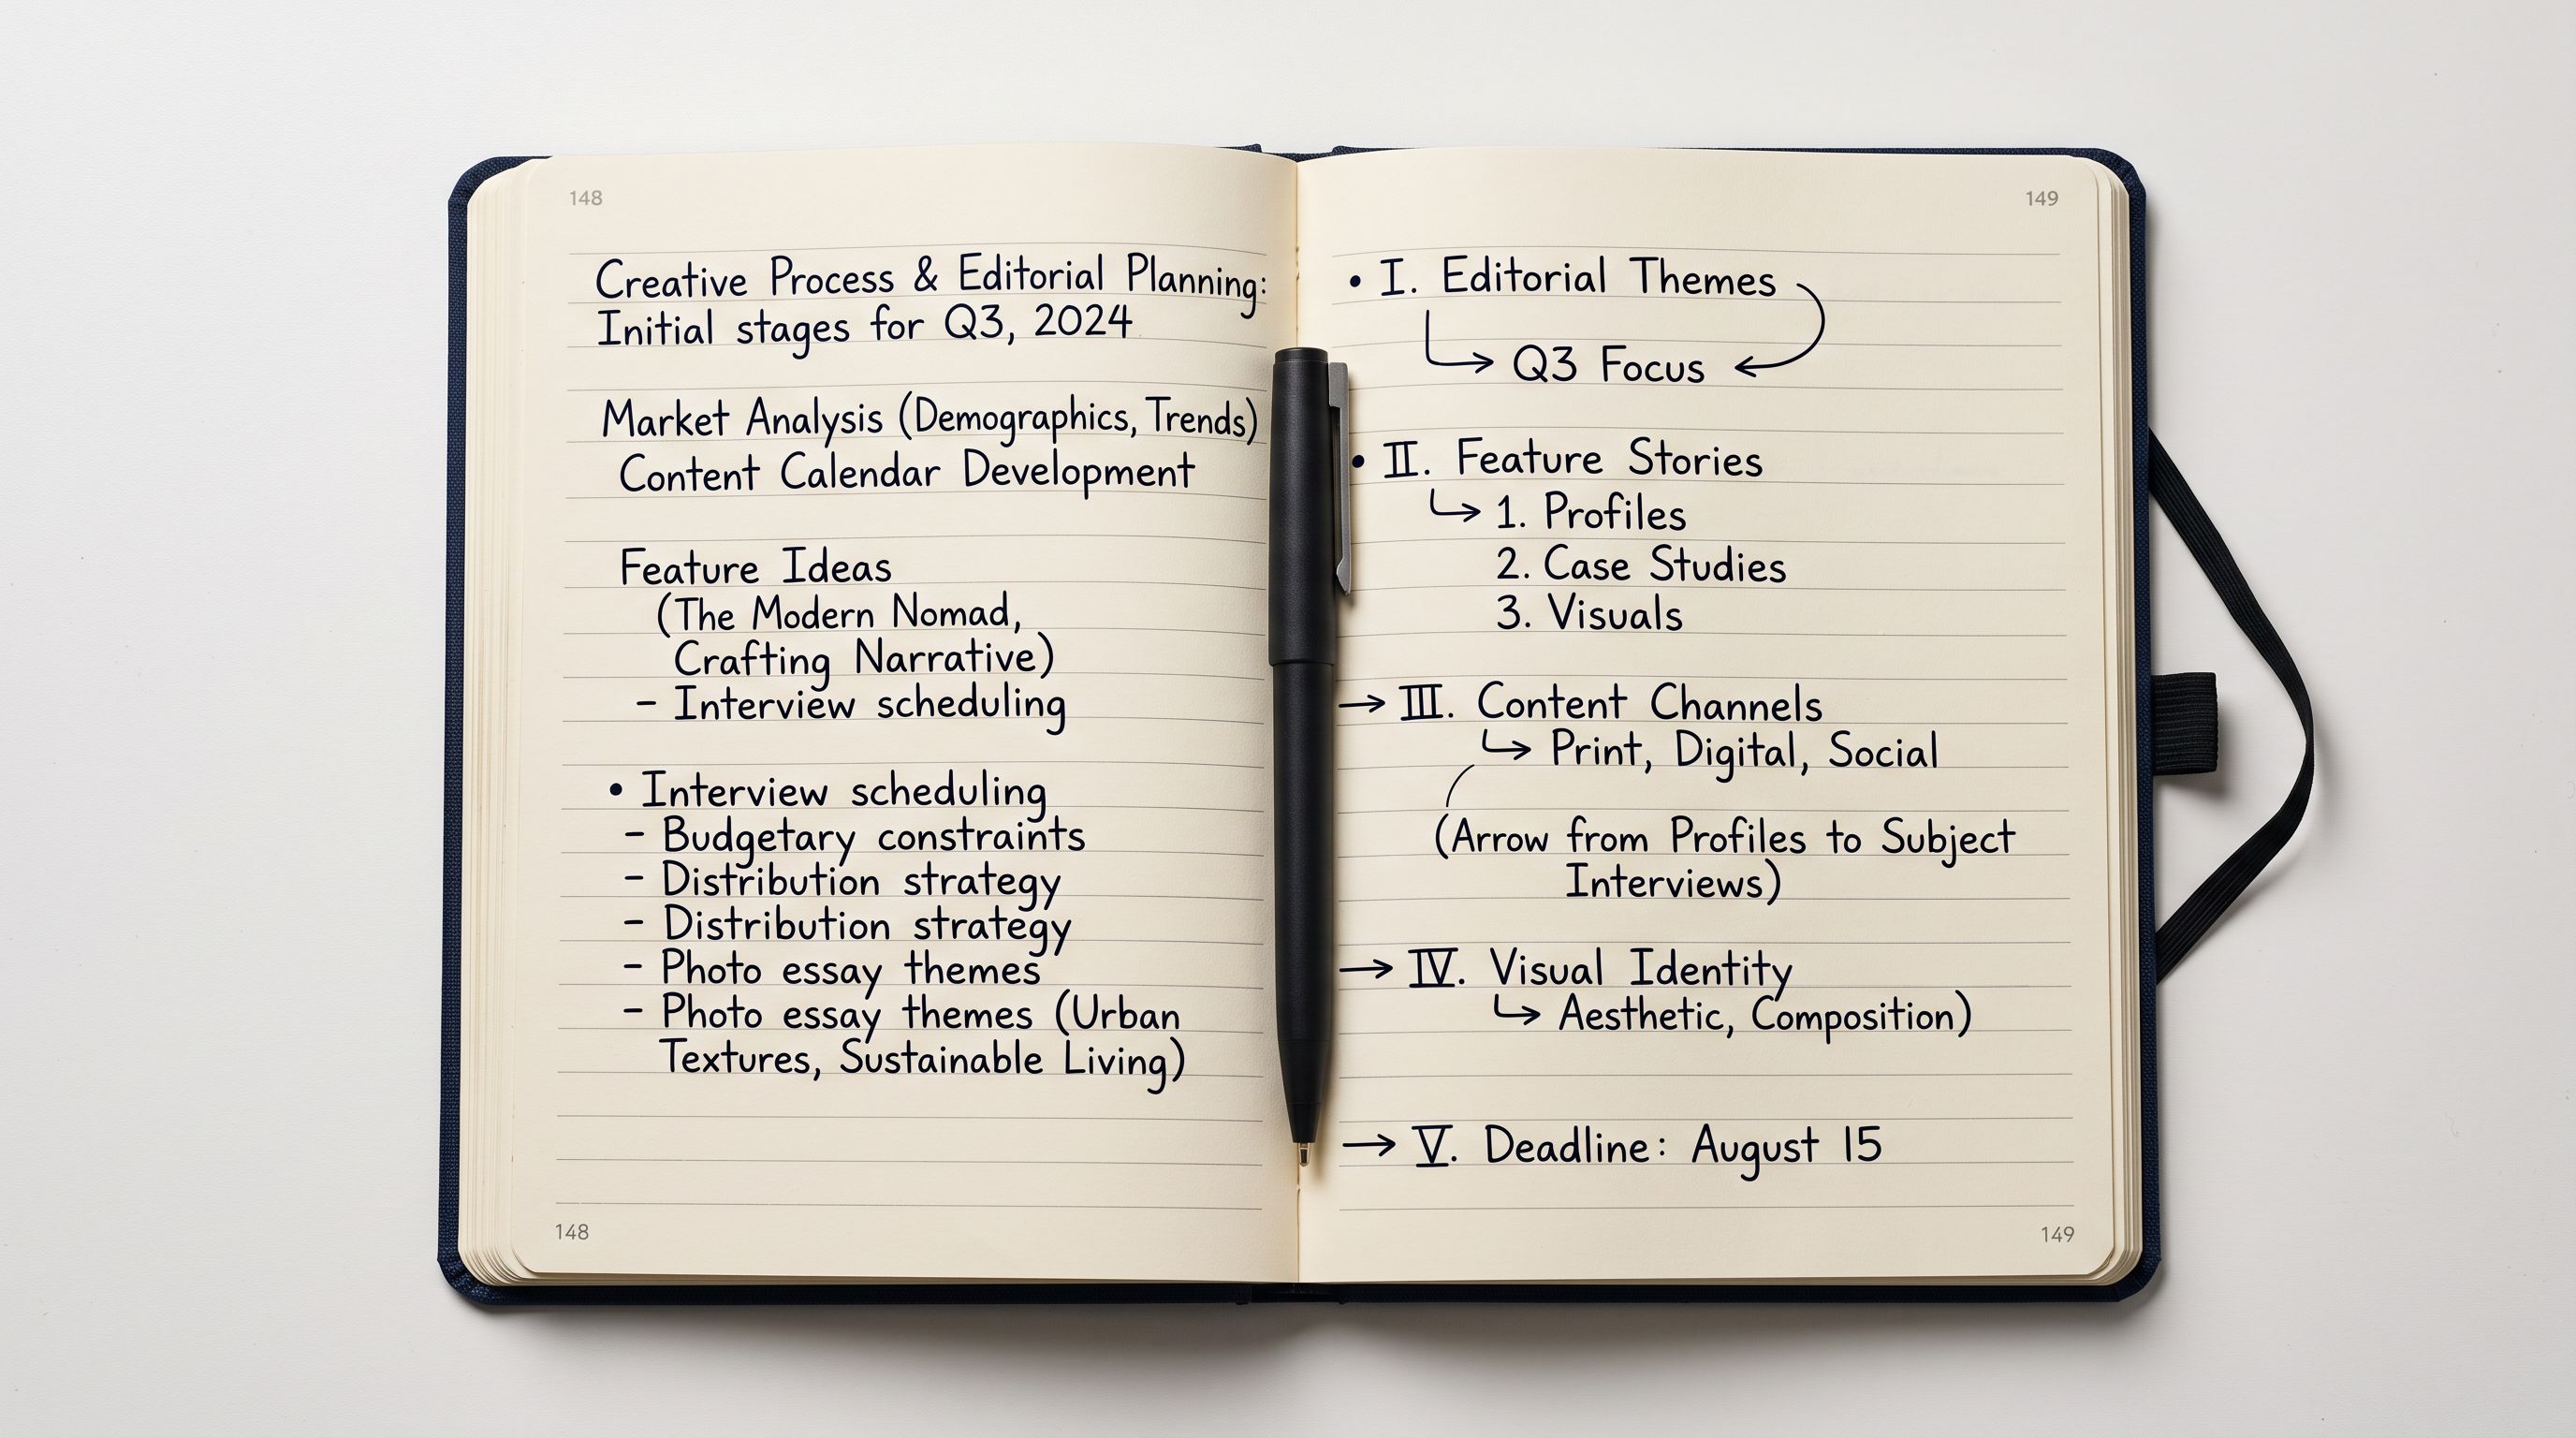 148
Creative Process & Editorial Planning:
Initial stages for Q3, 2024
Market Analysis (Demographics, Trends)
Content Calendar Development
Feature Ideas
(The Modern Nomad,
Crafting Narrative)
– Interview scheduling
• Interview scheduling
– Budgetary constraints
– Distribution strategy
– Distribution strategy
– Photo essay themes
– Photo essay themes (Urban
Textures, Sustainable Living)
148
149
• I. Editorial Themes
↳ Q3 Focus ←
• II. Feature Stories
↳ 1. Profiles
2. Case Studies
3. Visuals
→ III. Content Channels
↳ Print, Digital, Social
(Arrow from Profiles to Subject
Interviews)
→ IV. Visual Identity
↳ Aesthetic, Composition)
→ V. Deadline: August 15
149